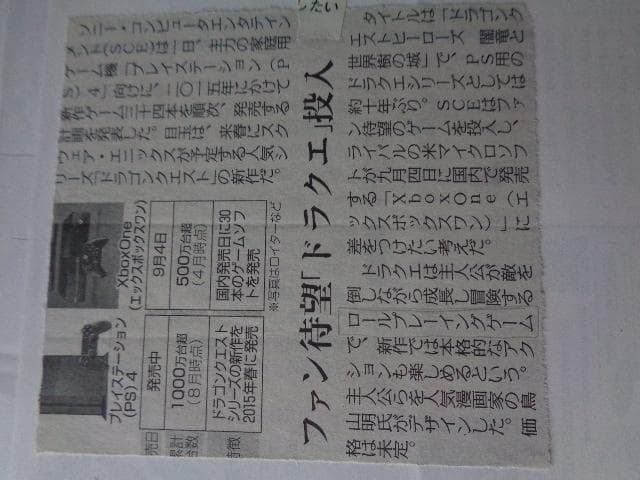 ファン待望「ドラクエ」投入
ソニー・コンピュータエンタテイン
メント(SCE)は一日、主力の家庭用
ゲーム機「プレイステーション(P
S)4」向けに、二〇一五年にかけて
新作ゲーム三十四本を順次、発売する
計画を発表した。目玉は、来春にスク
ウェア・エニックスが予定する人気シ
リーズ「ドラゴンクエスト」の新作だ。
プレイステーション
(PS)4
XboxOne
(エックスボックスワン)
売日
発売中
9月4日
累計
台数
1000万台超
(8月時点)
500万台超
(4月時点)
特徴
ドラゴンクエスト
シリーズの新作を
2015年春に発売
国内発売日に30
本のゲームソフ
トを発売
※写真はロイターなど
タイトルは「ドラゴンク
エストヒーローズ 闇竜と
世界樹の城」で、PS用の
ドラクエシリーズとしては
約十年ぶり。SCEはファ
ン待望のゲームを投入し、
ライバルの米マイクロソフ
トが九月四日に国内で発売
する「XboxOne(エ
ックスボックスワン)」に
差をつけたい考えだ。
ドラクエは主人公が敵を
倒しながら成長し冒険する
ロールプレーイングゲーム
で、新作では本格的なアク
ションも楽しめるという。
主人公らを人気漫画家の鳥
山明氏がデザインした。価
格は未定。
したい